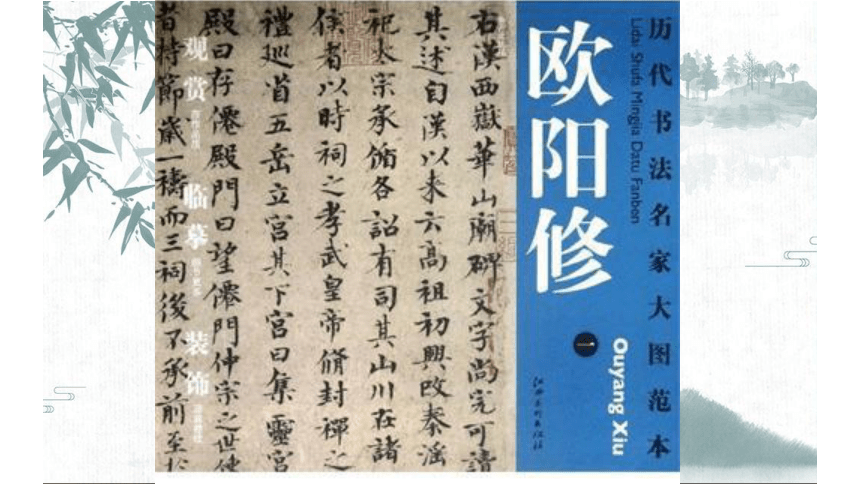 历代书法名家大图范本
Lidai Shufa Mingjia Datu Fanben
欧阳修
一
Ouyang Xiu
江西美术出版社
右漢西嶽華山廟碑文字尚完可讀
其述自漢以来云高祖初興改秦淫
祀太宗承循各詔有司其山川在諸
侯者以時祠之孝武皇帝脩封禪之
禮巡省五岳立宮其下宮曰集靈宮
殿曰存僊殿門曰望僊門仲宗之世使
者持節歲一禱而三祠後不承前至於
观赏
临摹
装饰